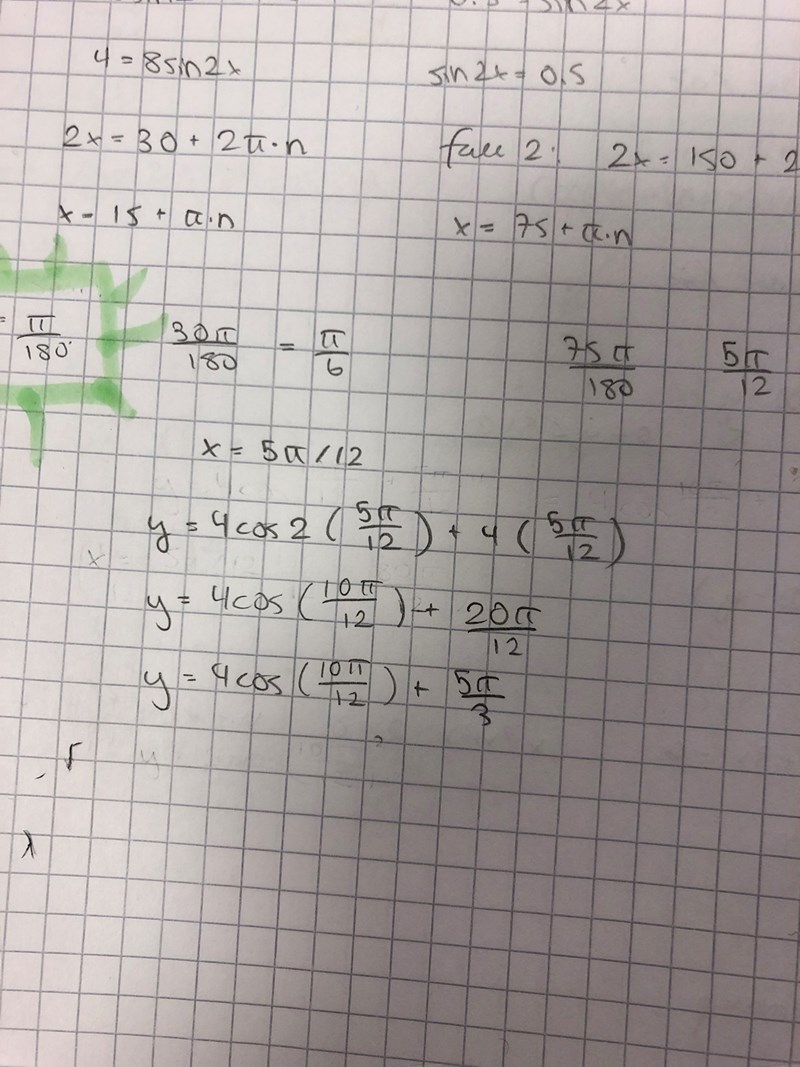 4 = 8sin2x sin2x = 0.5
2x = 30 + 2π·n fall 2: 2x = 150 + 2
x = 15 + π·n x = 75 + π·n
= π/180 30π/180 = π/6 75π/180 5π/12
x = 5π/12
y = 4cos2(5π/12) + 4(5π/12)
y = 4cos(10π/12) + 20π/12
y = 4cos(10π/12) + 5π/3